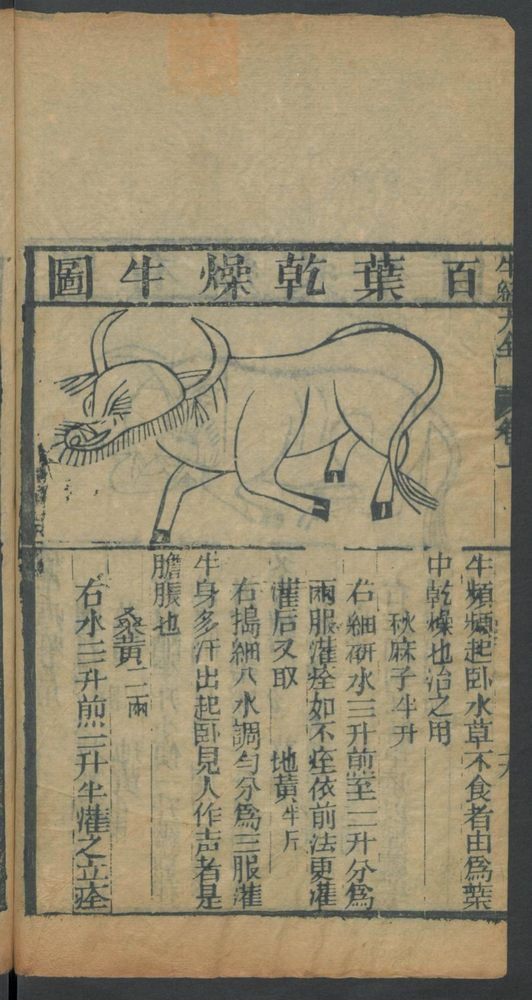 百葉乾燥牛圖
牛頻頻起臥水草不食者由爲葉
中乾燥也治之用
秋麻子半升
右細研水三升煎至二升分爲
兩服灌痊如不痊依前法更灌
灌后又取 地黃半斤
右搗細入水調勻分爲三服灌
牛身多汗出起臥見人作声者是
膽脹也
桑黃二兩
右水三升煎二升半灌之立痊